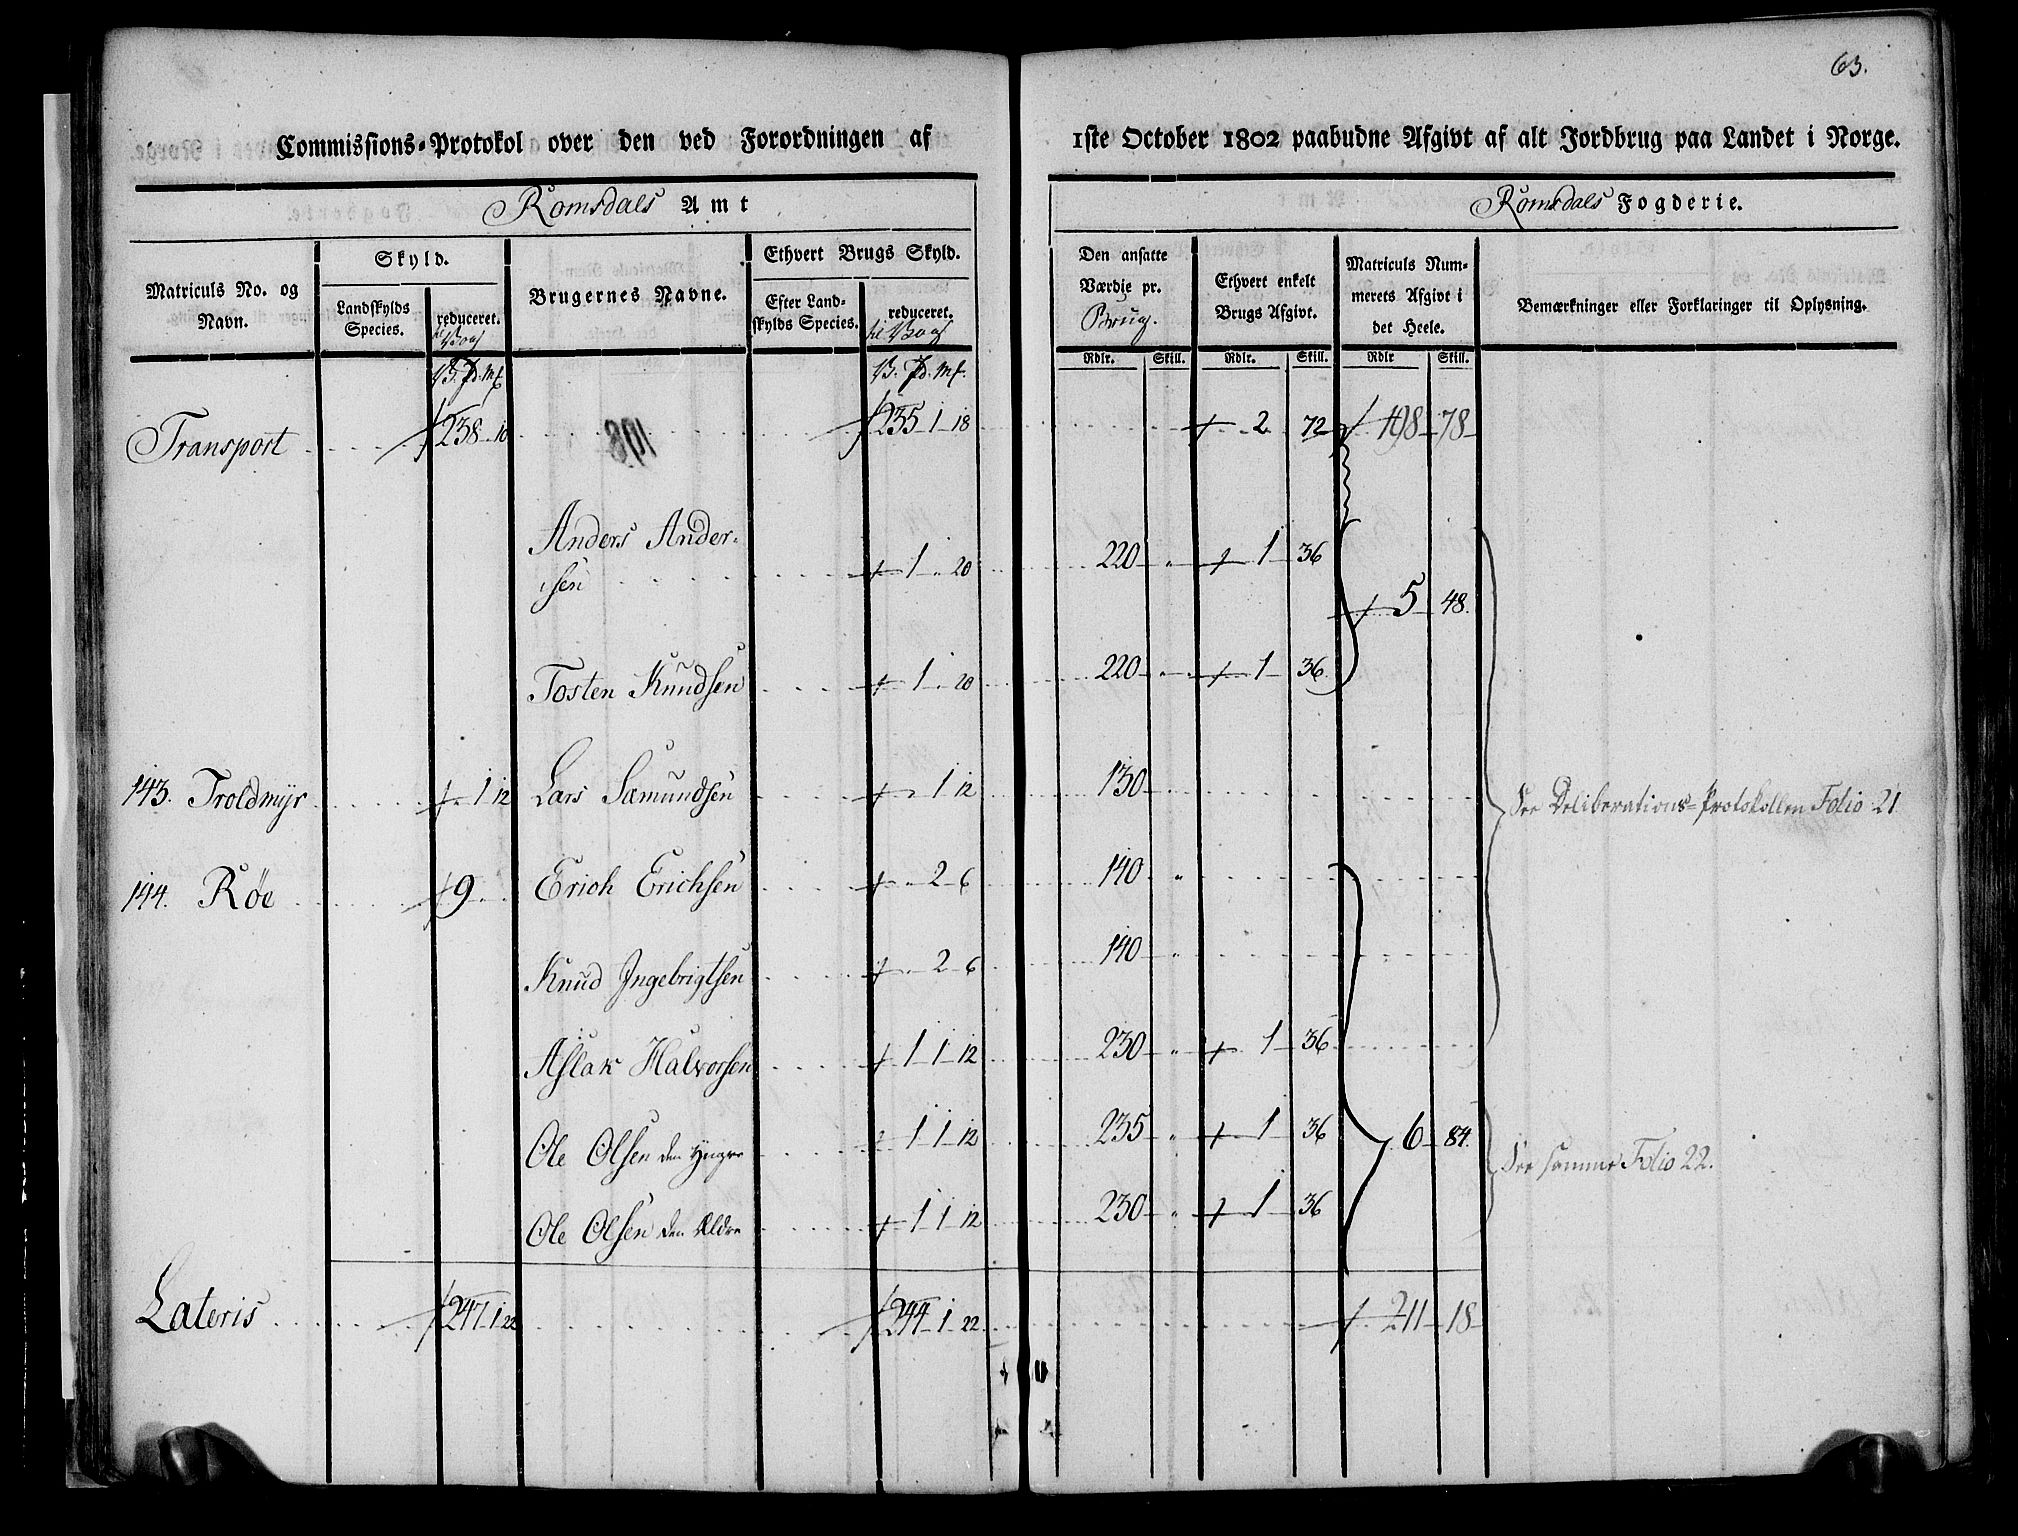 63.
Commissions-Protokol over den ved Forordningen af 1ste October 1802 paabudne Afgivt af alt Jordbrug paa Landet i Norge.
Romsdals Amt
Romsdals Fogderie.
Matriculs No. og Navn.
Skyld.
Landskylds Species.
reduceret. til Vog
Brugernes Navne.
Ethvert Brugs Skyld.
Efter Landskylds Species.
reduceret. til Vog
Den ansatte Værdie pr. Brug.
Ethvert enkelt Brugs Afgivt.
Matriculs Nummerets Afgivt i det Heele.
Bemærkninger eller Forklaringer til Oplysning.
Rdlr. Skill. Rdlr. Skill. Rdlr Skill.
V. Pd. Mk. V. Pd. Mk.
Transport 238 - 10 235 1 18 2 72 198 78
Anders Ander-
sen 1 " 20 220 " 1 36
5 48.
Tosten Knudsen 1 " 20 220 " 1 36
143. Troldmyr " 1 12 Lars Samundsen " 1 12 130 See Deliberations-Protokollen Folio 21
144. Røe 9 " " Erich Erichsen " 2 6 140 "
Knud Ingebrigtsen " 2 6 140 "
Aslak Halvorsen 1 1 12 230 " 1 36
Ole Olsen den Yngre 1 1 12 235 " 1 36 6 84. See samme Folio 22.
Ole Olsen den Ældre 1 1 12 230 " 1 36
Lateris 247 1 22 244 1 22 211 18